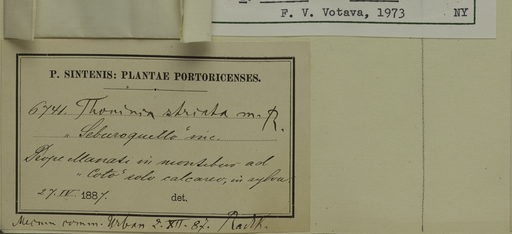 F. V. Votava, 1973 NY
P. SINTENIS: PLANTAE PORTORICENSES.
6741. Thouinia striata m. R.
„Seburoquello" inc.
Prope Manati in montibus ad
„Coto" solo calcareo, in sylva.
27. IV. 1887. det.
comm. Urban 2. XII. 87. Radlk.